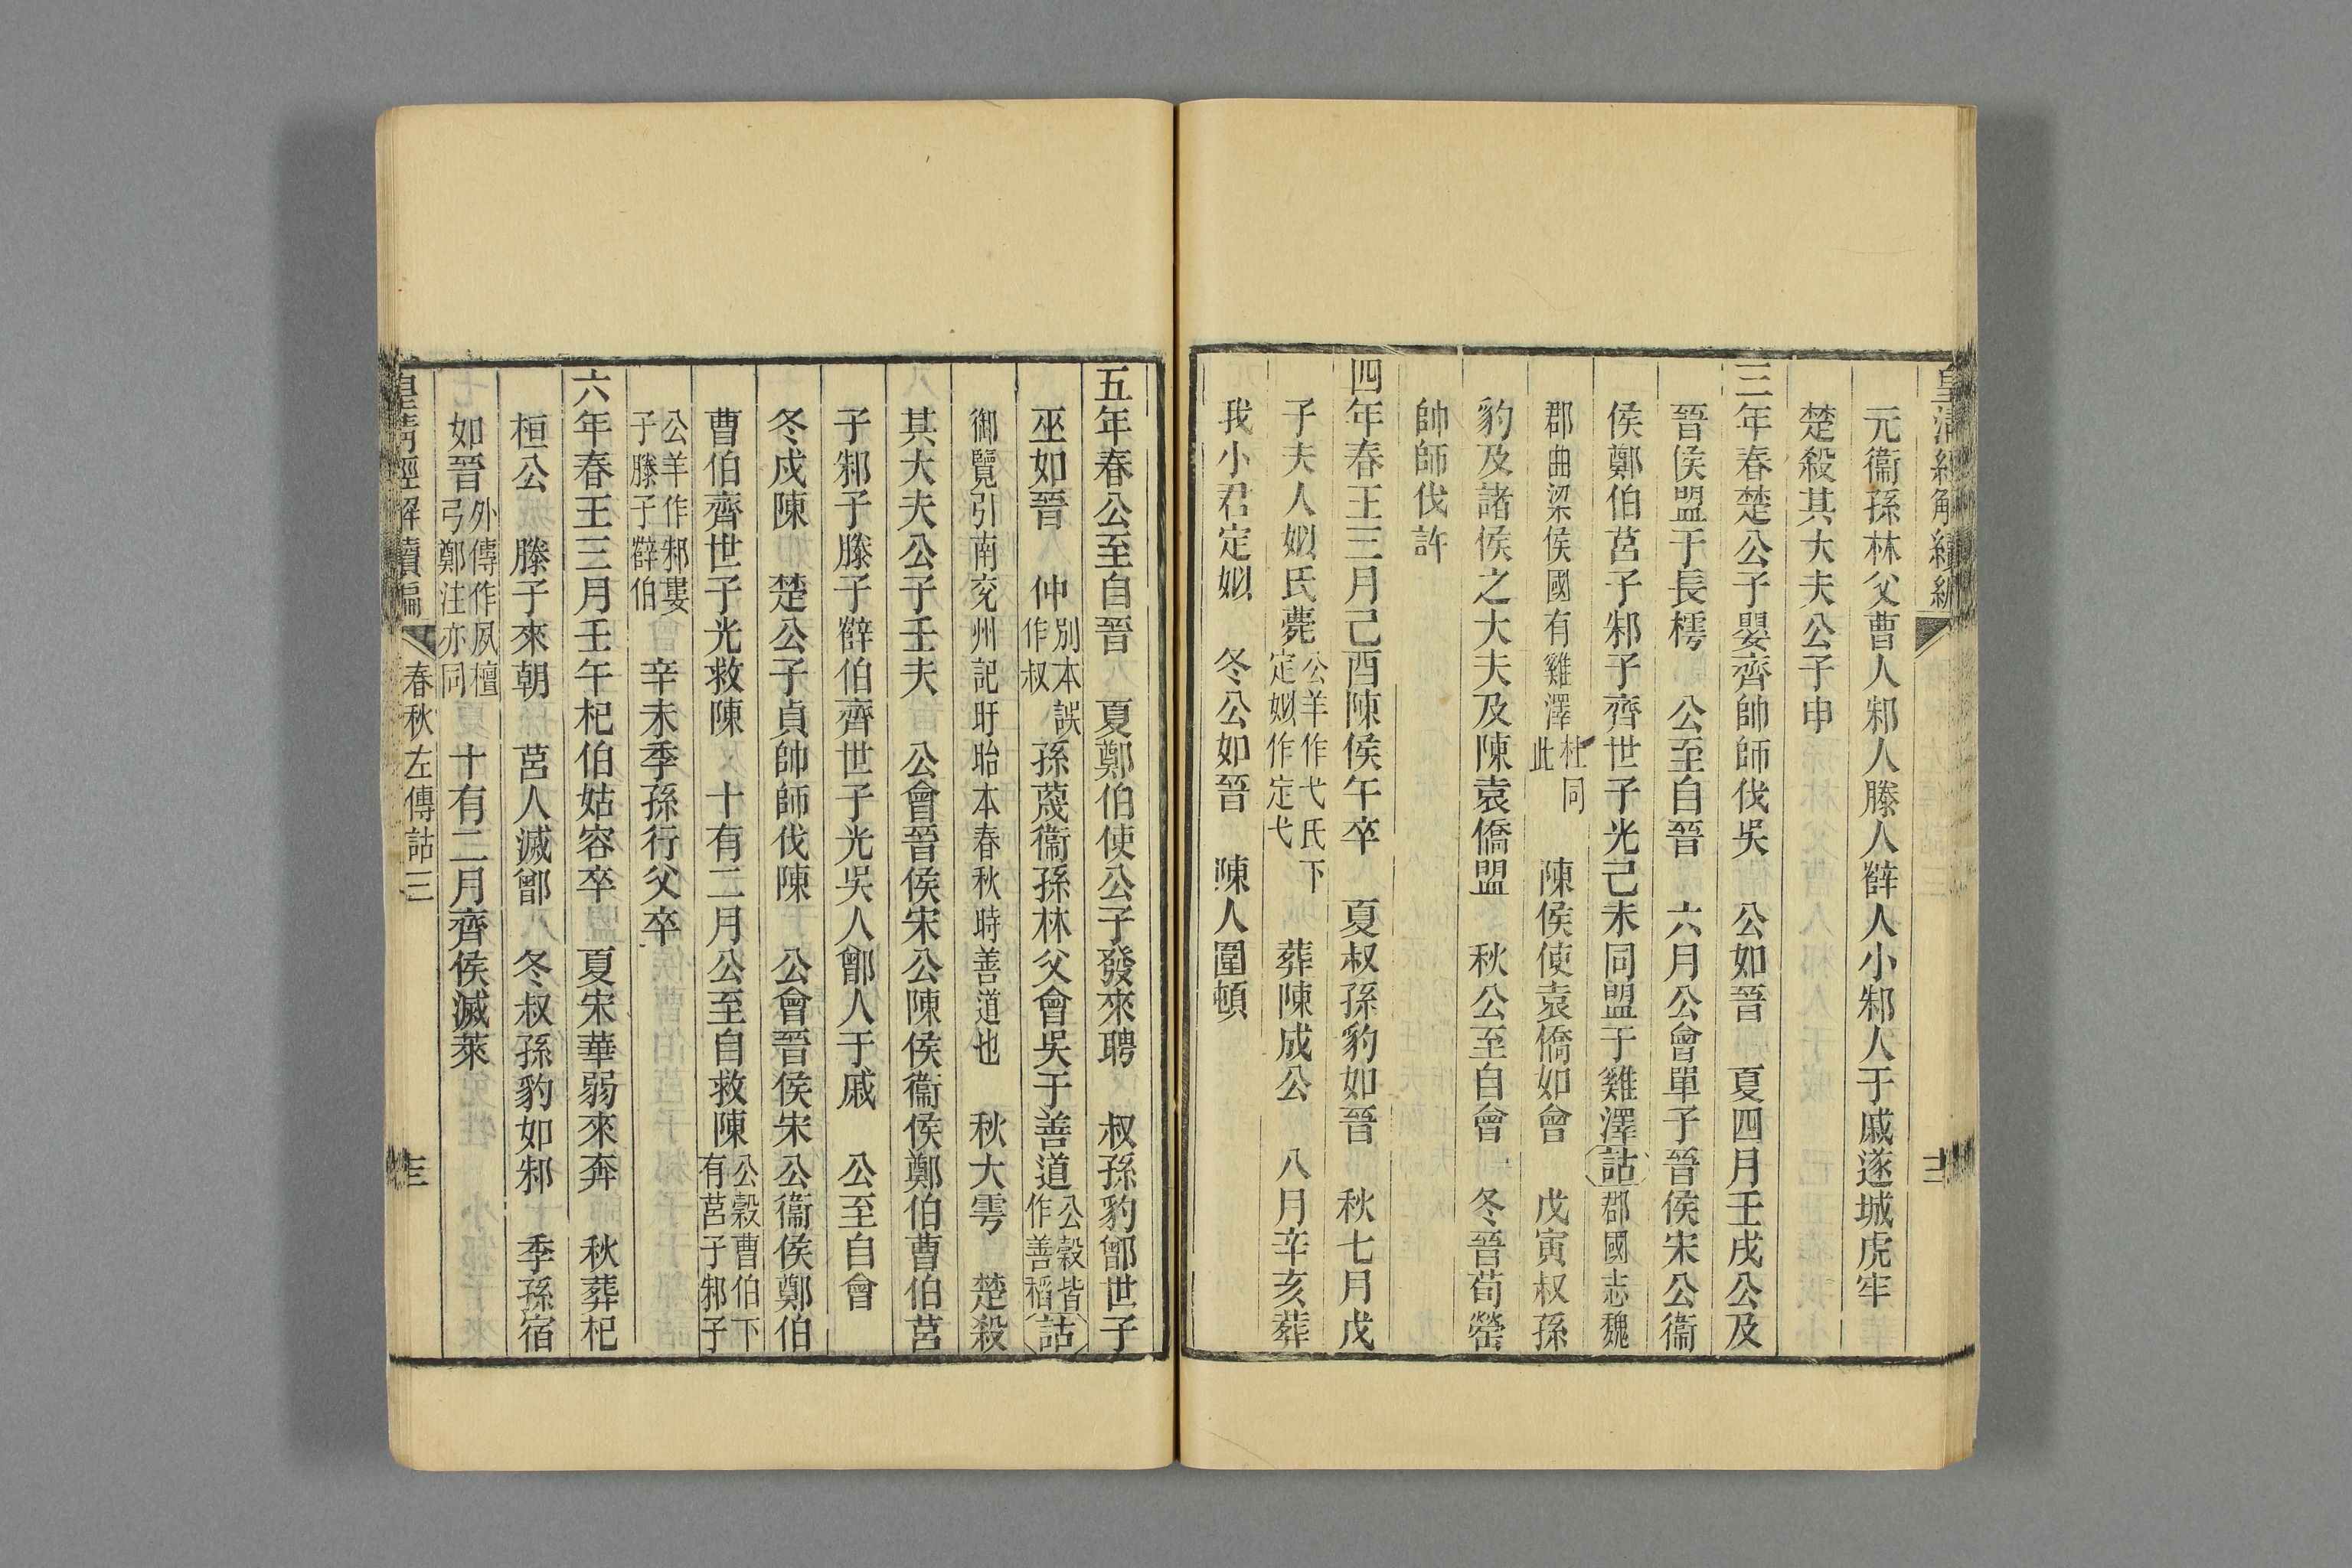 皇清經解續編
元衞孫林父曹人邾人滕人薛人小邾人于戚遂城虎牢
楚殺其大夫公子申
三年春楚公子嬰齊帥師伐吳　公如晉　夏四月壬戌公及
晉侯盟于長樗　公至自晉　六月公會單子晉侯宋公衞
侯鄭伯莒子邾子齊世子光己未同盟于雞澤詁郡國志魏
郡曲梁侯國有雞澤杜同此　陳侯使袁僑如會　戊寅叔孫
豹及諸侯之大夫及陳袁僑盟　秋公至自會　冬晉荀罃
帥師伐許
四年春王三月己酉陳侯午卒　夏叔孫豹如晉　秋七月戊
子夫人姒氏薨公羊作弋氏下定姒作定弋　葬陳成公　八月辛亥葬
我小君定姒　冬公如晉　陳人圍頓
五年春公至自晉　夏鄭伯使公子發來聘　叔孫豹鄫世子
巫如晉　仲別本誤作叔孫蔑衞孫林父會吳于善道公穀皆作善稻詁
御覽引南兗州記盱眙本春秋時善道也　秋大雩　楚殺
其大夫公子壬夫　公會晉侯宋公陳侯衞侯鄭伯曹伯莒
子邾子滕子薛伯齊世子光吳人鄫人于戚　公至自會
冬戍陳　楚公子貞帥師伐陳　公會晉侯宋公衞侯鄭伯
曹伯齊世子光救陳　十有二月公至自救陳公穀曹伯下有莒子邾子
公羊作邾婁子滕子薛伯　辛未季孫行父卒
六年春王三月壬午杞伯姑容卒　夏宋華弱來奔　秋葬杞
桓公　滕子來朝　莒人滅鄫　冬叔孫豹如邾　季孫宿
如晉外傳作夙檀弓鄭注亦同　十有二月齊侯滅萊
皇清經解續編　春秋左傳詁三